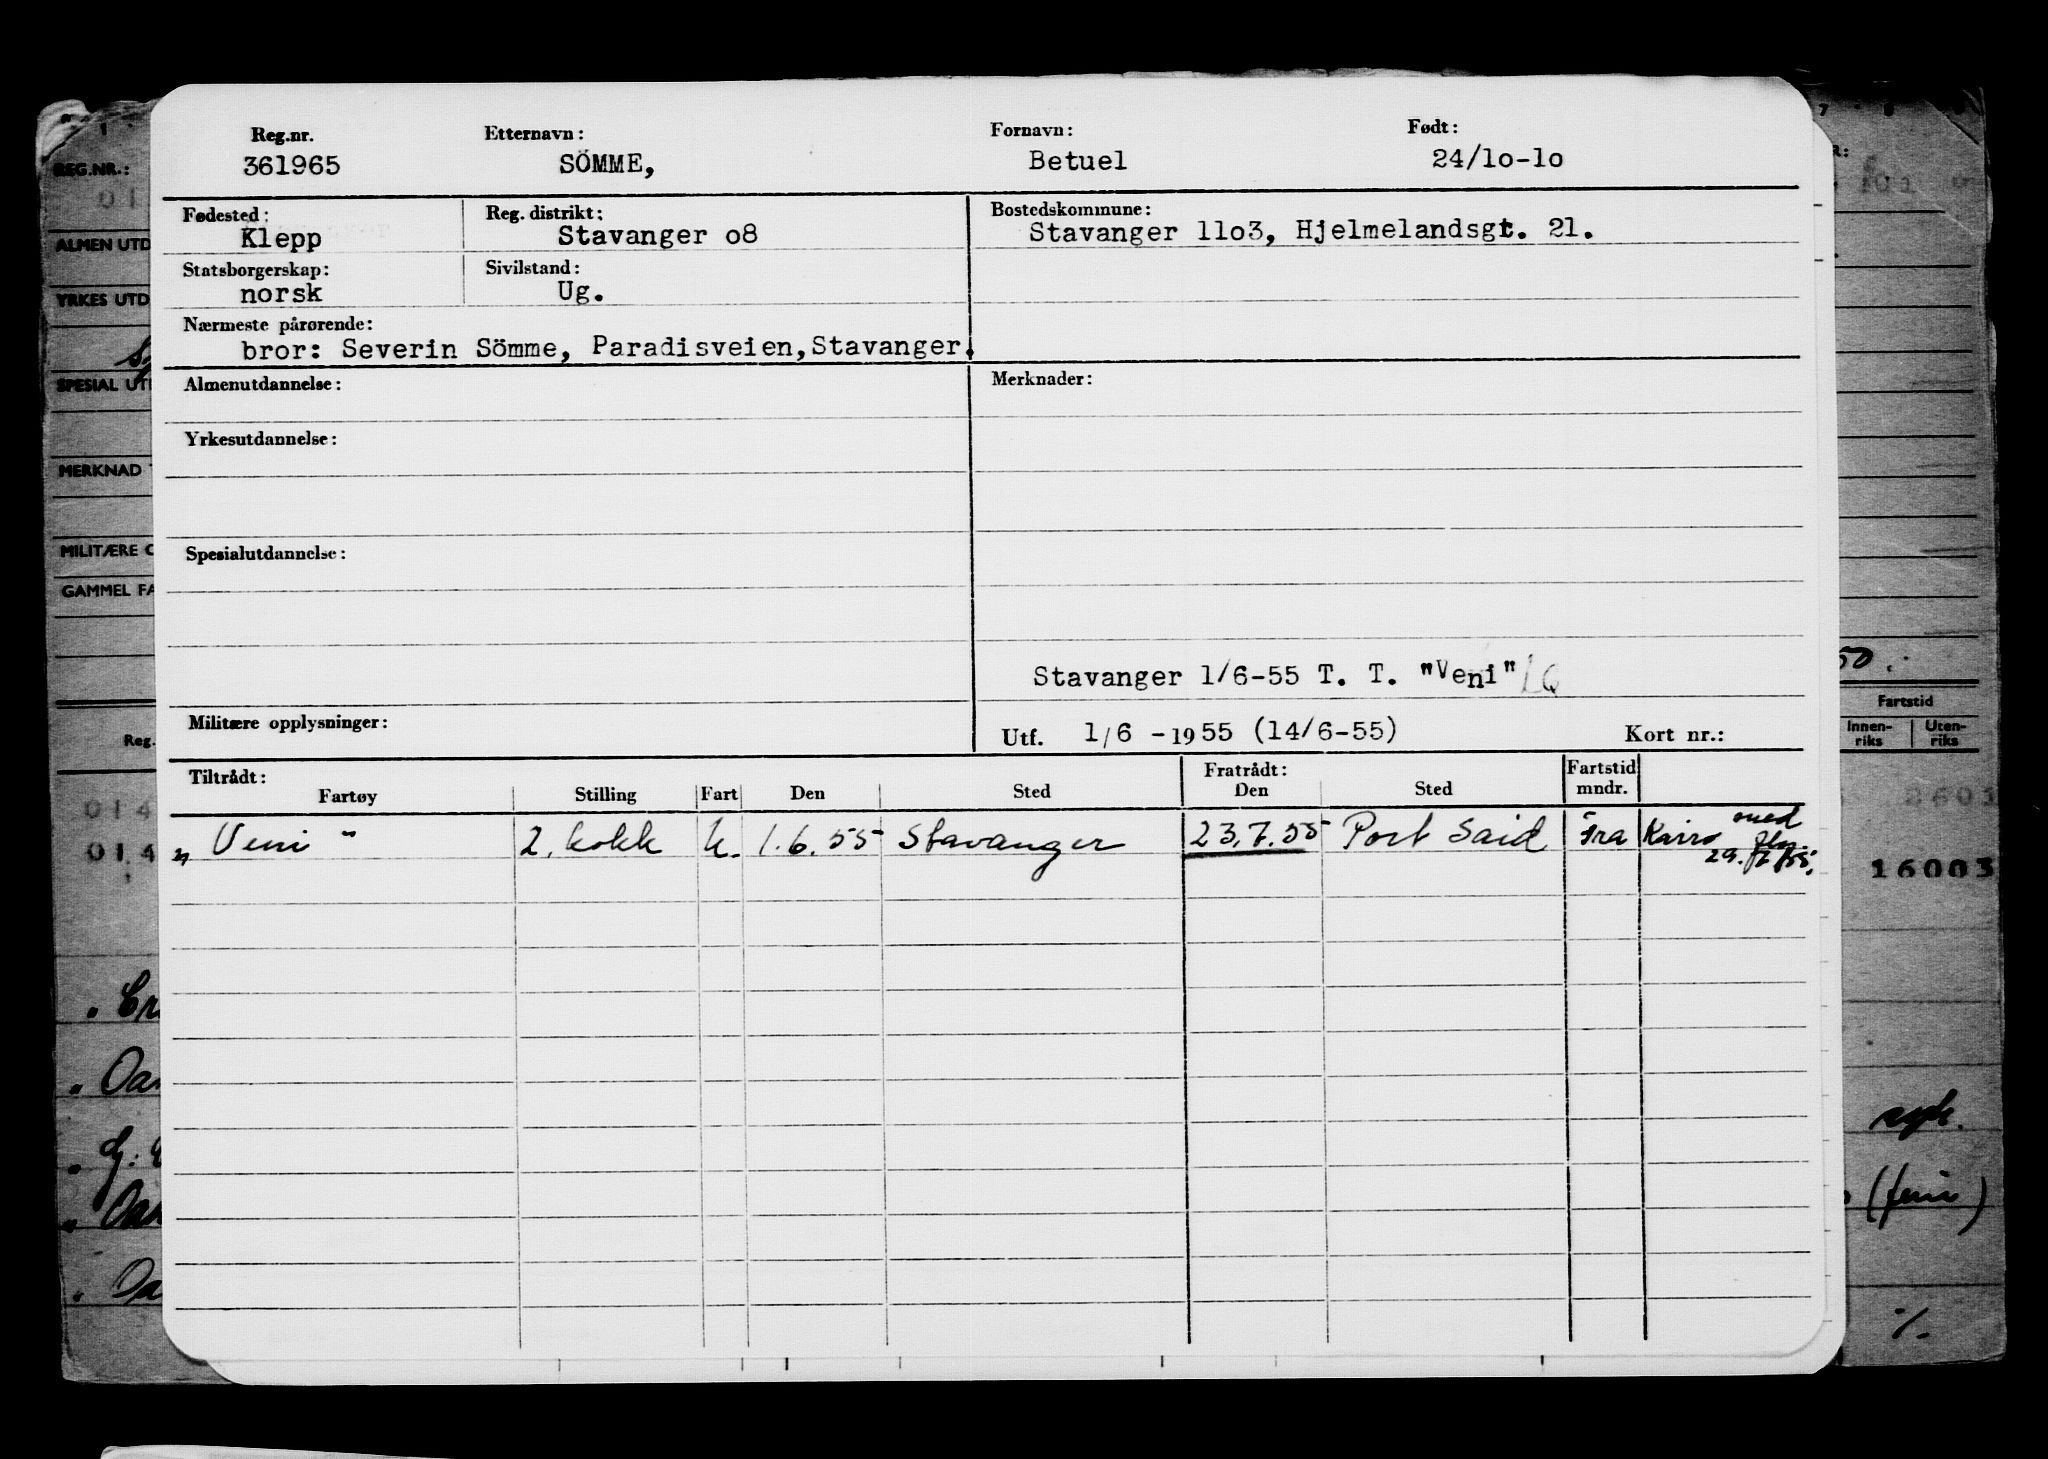 Reg.nr. Etternavn: Fornavn: Født:
361965 SÖMME, Betuel 24/lo-lo
Fødested: Reg. distrikt: Bostedskommune:
Klepp Stavanger o8 Stavanger llo3, Hjelmelandsgt. 21.
Statsborgerskap: Sivilstand:
norsk Ug.
Nærmeste pårørende:
bror: Severin Sömme, Paradisveien,Stavanger.
Almenutdannelse: Merknader:
Yrkesutdannelse:
Spesialutdannelse:
Stavanger 1/6-55 T. T. "Veni"
Militære opplysninger:
Utf. 1/6 -1955 (14/6-55) Kort nr.:
Tiltrådt: Fratrådt: Fartstid
Fartøy Stilling Fart Den Sted Den Sted mndr.
"Veni" 2. kokk u. 1.6.55 Stavanger 23.7.55 Port Said Fra Kairo med
fly.
29.7/55.
REG.NR.:
01
ALMEN UTD
YRKES UTD
SPESIAL UT
MERKNAD
MILITÆRE
GAMMEL FA
Reg.
014
014
7 8
50.
Fartstid
Innen-
riks
Uten-
riks
8603
16003
(ferie)